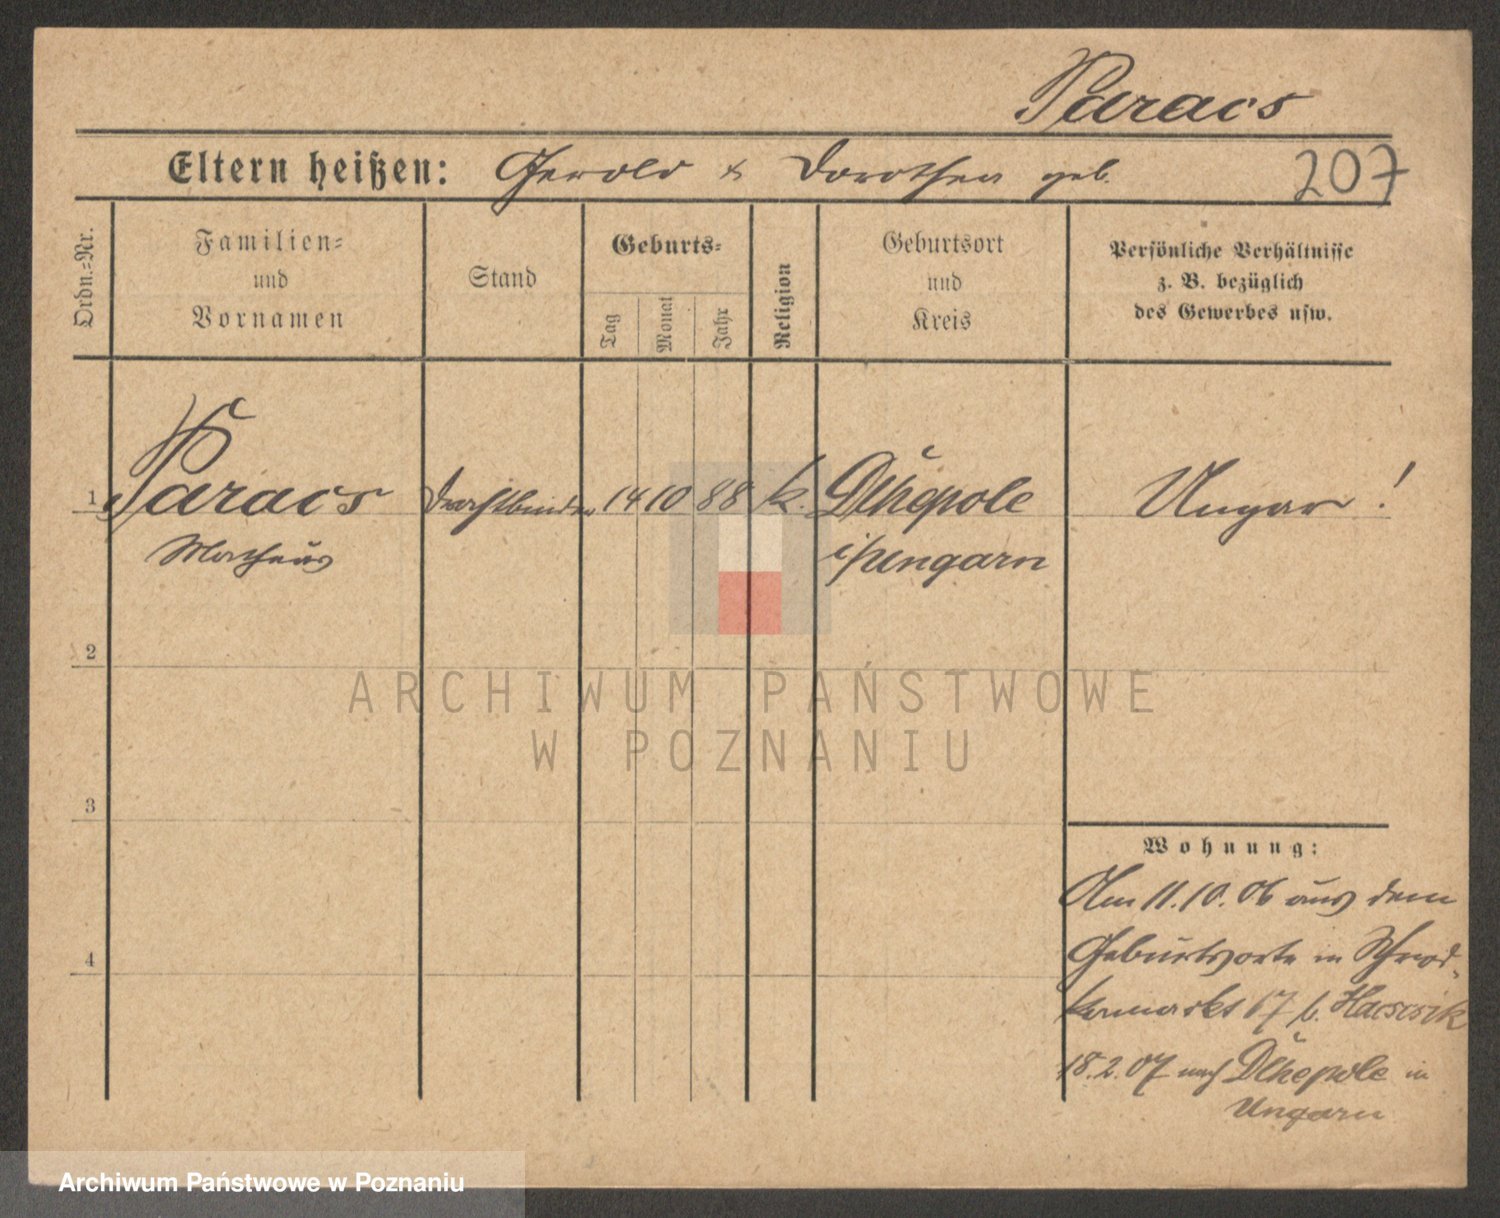 Paracs
Eltern heißen: Gerold & Dorothea geb.
207
Ordn.=Nr.
Familien=
und
Vornamen
Stand
Geburts=
Tag
Monat
Jahr
Religion
Geburtsort
und
Kreis
Persönliche Verhältnisse
z. B. bezüglich
des Gewerbes usw.
1 Paracs Drahtbinder 14 10 88 k. Dlhepole Ungar!
Matheus i/Ungarn
2
3
4
Wohnung:
Am 11.10.06 aus dem
Geburtsorte in Schrod-
kamarkt 17 b.
18.2.07 nach Dlhepole in
Ungarn
ARCHIWUM PAŃSTWOWE
W POZNANIU
Archiwum Państwowe w Poznaniu